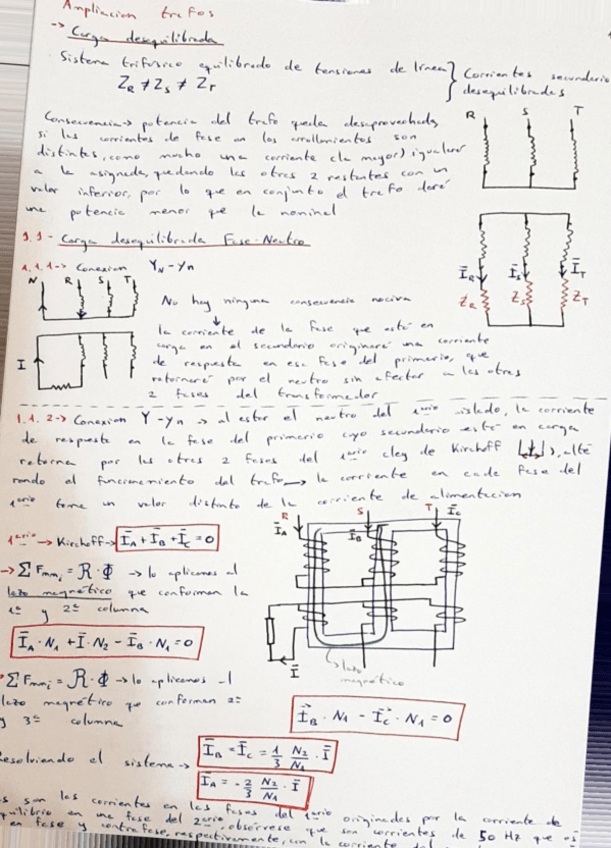 Ampliacion trafos
-> Carga desequilibrada
Sistema trifasico equilibrado de tensiones de linea } Corrientes secundario
Z_R ≠ Z_S ≠ Z_T desequilibradas
Consecuencia -> potencia del trafo queda desaprovechada,
si las corrientes de fase en los arrollamientos son
distintas, como mucho una corriente (la mayor) igualara
a la asignada, quedando las otras 2 restantes con un
valor inferior, por lo que en conjunto el trafo dará
una potencia menor que la nominal
R S T
I̅_R I̅_S I̅_T
Z_R Z_S Z_T
1.1- Carga desequilibrada Fase-Neutro
1.1.1-> Conexion Y_N-yn
N R S T
I
No hay ninguna consecuencia nociva
la corriente de la fase que está en
carga en el secundario originará una corriente
de respuesta en esa fase del primario, que
retornará por el neutro sin afectar a las otras
2 fases del transformador
1.1.2-> Conexion Y-yn -> al estar el neutro del 1ario aislado, la corriente
de respuesta en la fase del primario cuyo secundario está en carga
retorna por las otras 2 fases del 1ario (ley de Kirchoff), alte
rando el funcionamiento del trafo -> la corriente en cada fase del
1ario toma un valor distinto de la corriente de alimentacion
1ario -> Kirchoff -> I̅_A + I̅_B + I̅_C = 0
R S T
I̅_A I̅_B I̅_C
I̅
lazo
magnético
-> ∑ Fmm_i = R · Φ -> lo aplicamos al
lazo magnético que conforman la
1ª y 2ª columna
I̅_A · N₁ + I̅ · N₂ - I̅_B · N₁ = 0
∑ Fmm_i = R · Φ -> lo aplicamos al
lazo magnético que conforman 2ª
y 3ª columna
I̅_B · N₁ - I̅_C · N₁ = 0
Resolviendo el sistema -> I̅_B = I̅_C = 1/3 N₂/N₁ · I̅
I̅_A = - 2/3 N₂/N₁ · I̅
s son las corrientes en las fases del 1ario originadas por la corriente de
quilibrio en una fase del 2ario, obsérvese que son corrientes de 50 Hz que es
en fase y contrafase, respectivamente, con la corriente del